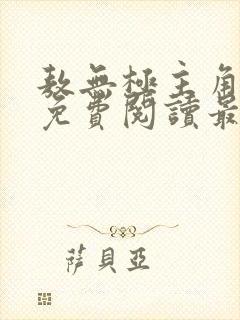 敖無極主角
免費閱讀最
萨貝亞